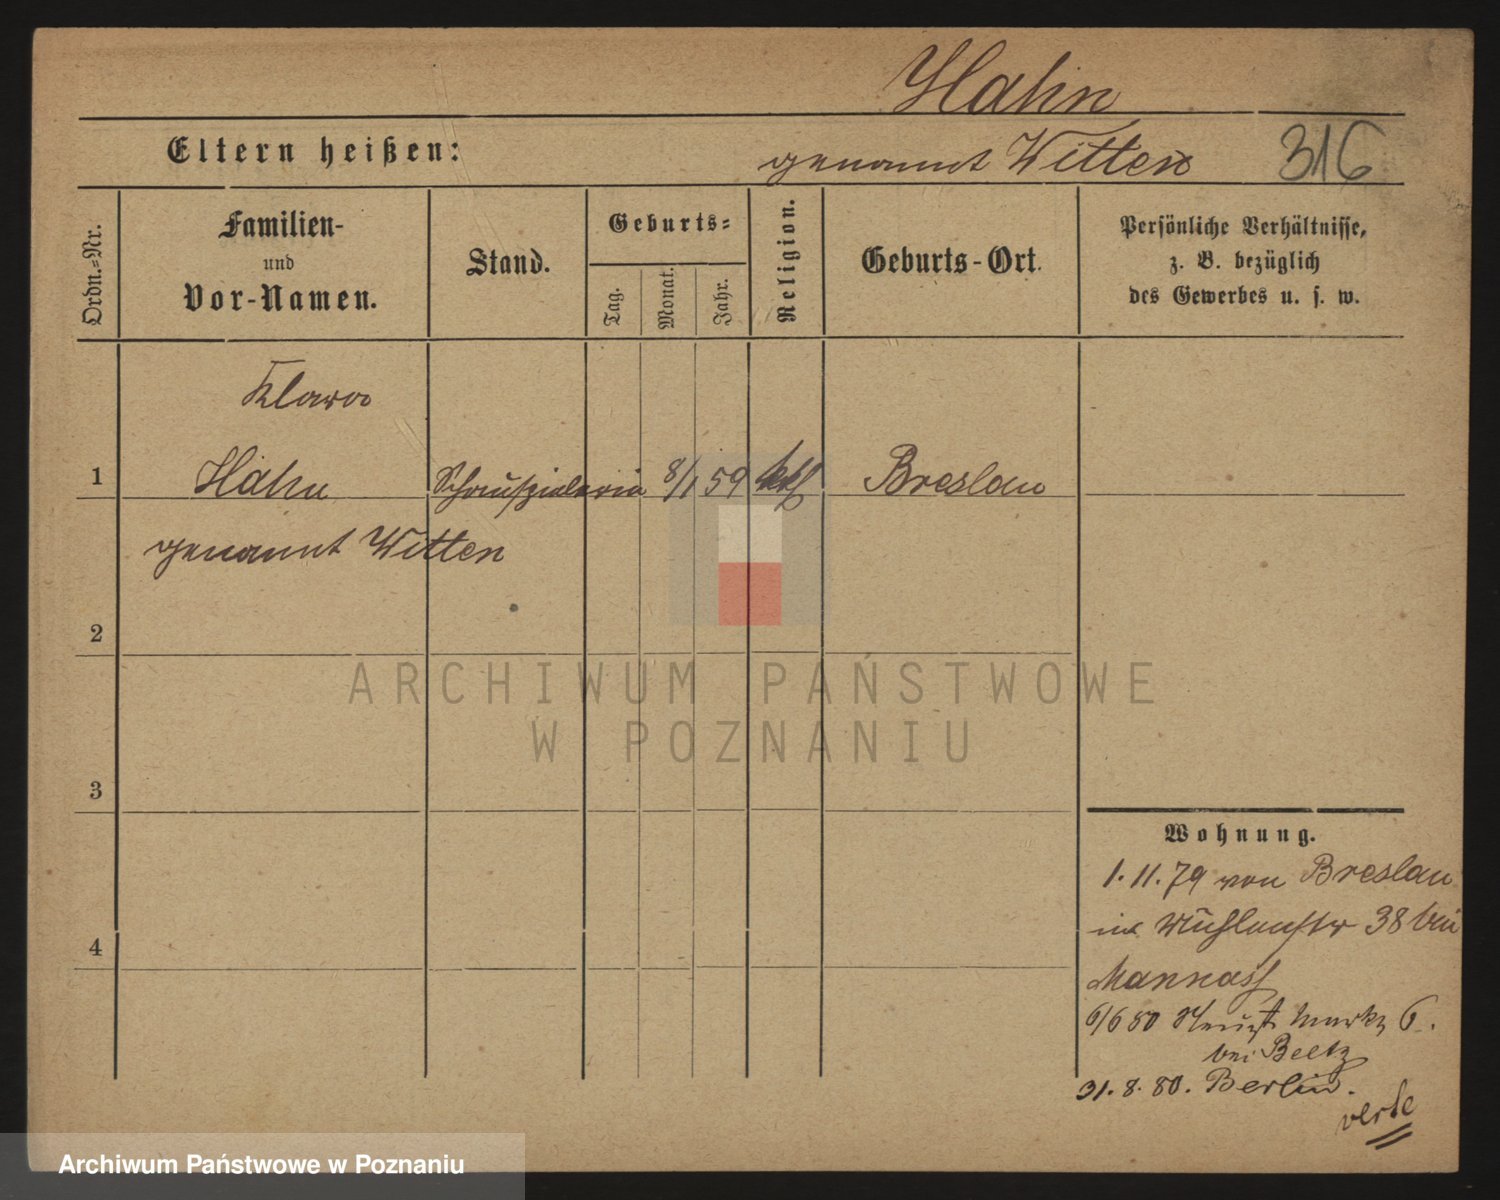 Hahn
Eltern heißen:
genannt Witten
316
Ordn.-Nr.
Familien-
und
Vor-Namen.
Stand.
Geburts-
Tag.
Monat.
Jahr.
Religion.
Geburts-Ort.
Persönliche Verhältnisse,
z. B. bezüglich
des Gewerbes u. s. w.
Klara
1 Hahn Schauspielerin 8/1 59 kth Breslau
genannt Witten
2
ARCHIWUM PAŃSTWOWE
W POZNANIU
3
Wohnung.
1.11.79 von Breslau
in Mühlenstr 38 bei
Mannass
4
6/6 80 Neust Markt 6.
bei Beetz
31.8.80. Berlin.
verte
Archiwum Państwowe w Poznaniu